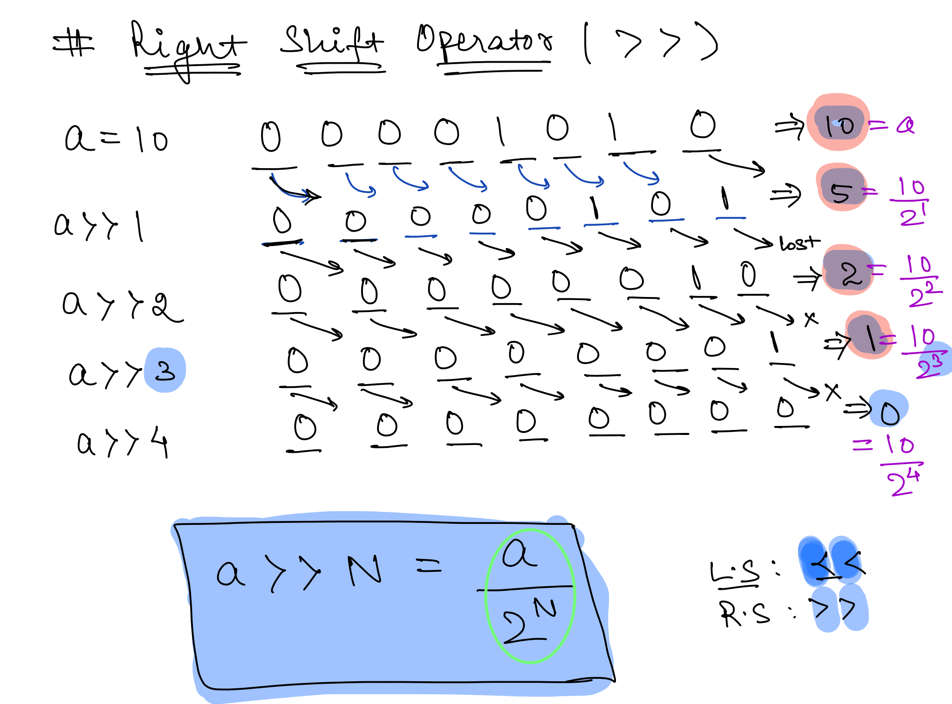 # Right Shift Operator ( >> )
a = 10 0 0 0 0 1 0 1 0 ⇒ 10 = a
a >> 1 0 0 0 0 0 1 0 1 ⇒ 5 = 10/2^1
lost
a >> 2 0 0 0 0 0 0 1 0 ⇒ 2 = 10/2^2
x
a >> 3 0 0 0 0 0 0 0 1 ⇒ 1 = 10/2^3
x
a >> 4 0 0 0 0 0 0 0 0 ⇒ 0
= 10/2^4
a >> N = a/2^N
L.S : <<
R.S : >>